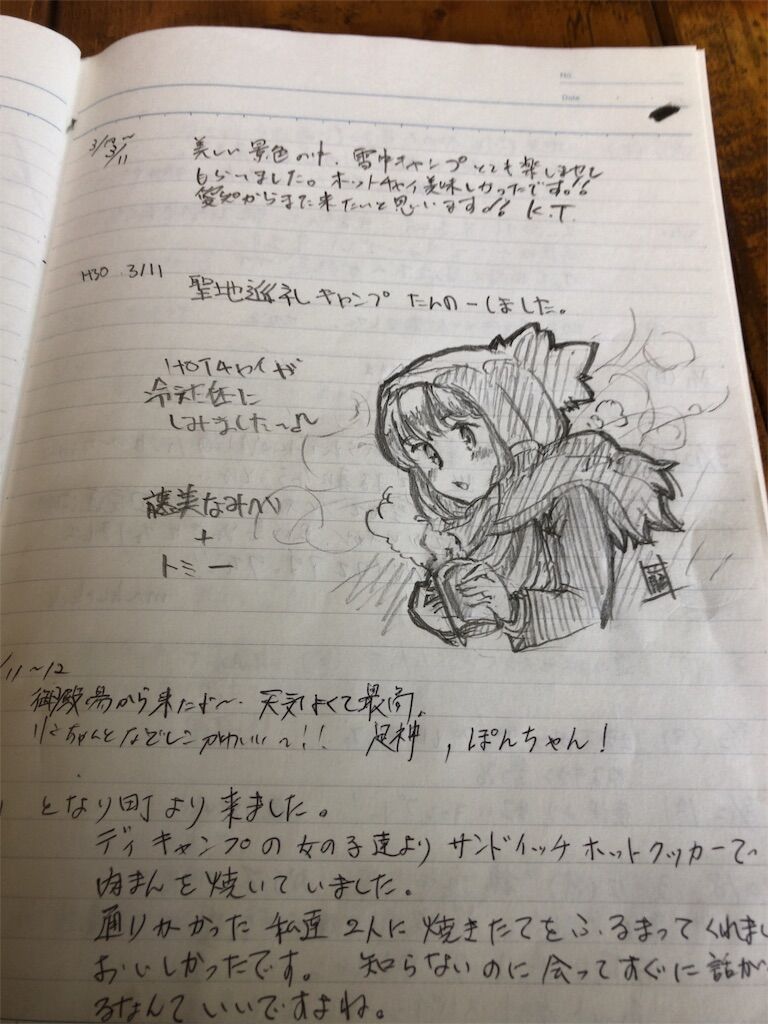 No.
Date
3/10〜
3/11
美しい景色の中、雪中キャンプとても楽しませて
もらいました。ホットチャイ美味しかったです!!
愛知からまた来たいと思います!! K.T.
H30 3/11
聖地巡礼キャンプ たんのーしました。
HOTチャイが
冷えた体に
しみましたー♪
なみへい
+
トミー
/11〜12
御殿場から来たよ〜。天気よくて最高。
リンちゃんとなでしこかわいい〜!! 足神,ぽんちゃん!
となり町より来ました。
デイキャンプの女の子達よりサンドイッチホットクッカーで
肉まんを焼いていました。
通りかかった私達2人に焼きたてをふるまってくれまし
おいしかったです。 知らないのに会ってすぐに話が
るなんていいですよね。